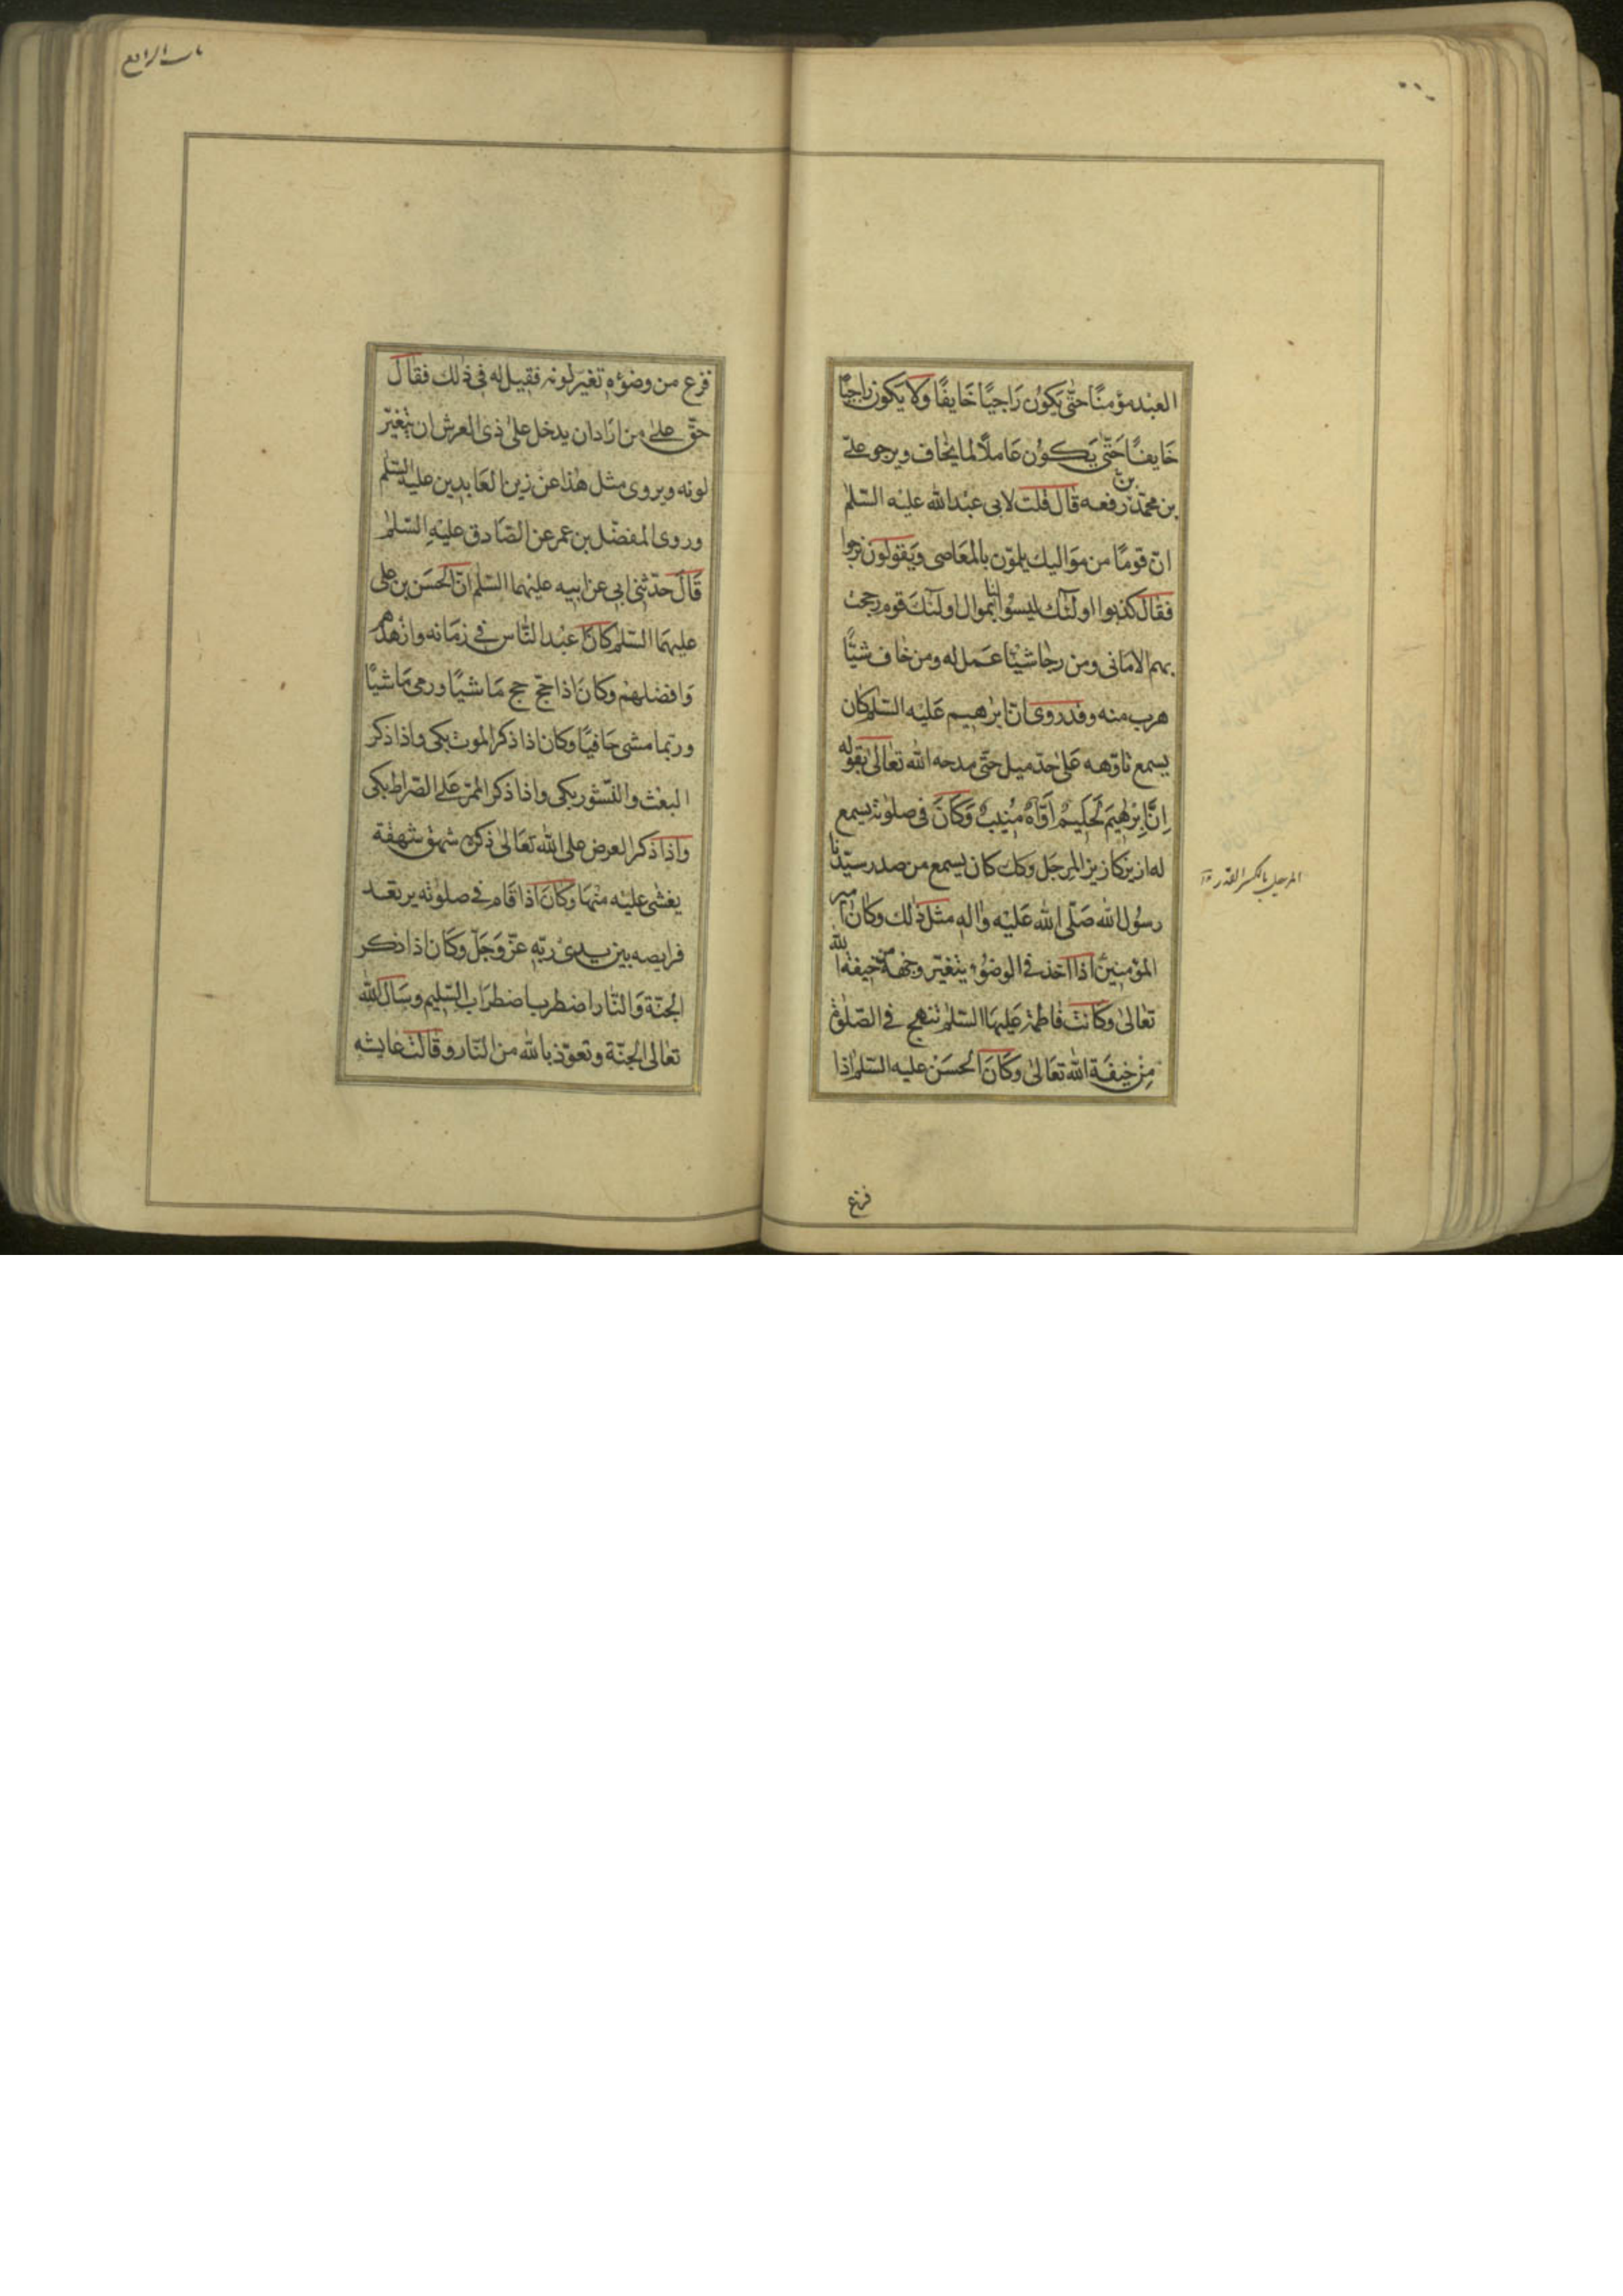 العبد مؤمنًا حتّى يكون رَاجيًا خَايفًا ولا يكون راجيًا
خَايفًا حَتّى يَكون عَاملًا لما يخاف ويرجو على
بن محمّد رفعه قال قلت لابى عبد الله عليه السّلم
انّ قومًا من مَواليك يلمّون بالمعَاصى ويَقولون نرجوا
فقال كذبوا اولئك ليسوا لنا بموال اولئك قوم رجحت
بهم الامانى ومن رجا شيئا عَمل له ومن خاف شيئًا
هرب منه وقد روى انّ ابرهيم عَليه السّلم كان
يسمع تاوّهه عَلى حدّ ميل حتّى مدحه الله تعالى بقوله
اِنَّ اِبْرٰهيمَ لَحَليمٌ اَوَّاهٌ مُنيبٌ وَكَانَ فى صلوته يسمع
له ازيز كازيز المرجَل وكك كان يسمع من صدر سيّدنا
رسُول الله صَلّى الله عَليه واله مثل ذلك وكان امير
المؤمنين اذا اخذ فى الوضُوء يتغيّر وجهه من خيفة الله
تعالى وكانت فاطمة عَليهَا السّلم تنهج فى الصّلوة
مِن خيفَة الله تعَالى وكَانَ الحسَن عليه السّلم اذا
المرجل بالكسر القدر
فرغ
باب الرابع
فرغ من وضوُءه تغيّر لونه فقيل له فى ذلك فقال
حقّ على من ارَاد ان يدخل على ذى العرش ان يتغيّر
لونه ويروى مثل هذا عن زين العَابدين عليه السّلم
وروى المفضّل بن عمر عن الصّادق عليهِ السّلم
قَالَ حدّثنى ابى عن ابيه عليهما السّلم انّ الحسَن بن على
عليهمَا السّلم كَانَ اعبد النّاس فى زمَانه وازهدهم
وَافضلهم وكانَ اذا حَجّ حج مَاشيًا ورمى مَاشيًا
وربّما مشى حَافيًا وكان اذا ذكر الموت بكى واذا ذكر
البعث والنّشور بكى واذا ذكر الممرّ عَلى الصّراط بكى
واذا ذكر العرض على الله تعَالى ذكره شهق شهقة
يغشى عليْه منهَا وكَانَ اذا قَام فى صلوته يرتعد
فرايصه بين يدى ربّهِ عزّ وَجَلّ وكَان اذا ذكر
الجنّة وَالنّار اضطرب اضطرَاب السّليم وسَال الله
تعالى الجنّة وتعوّذ بالله من النّار وقَالت عَايشه